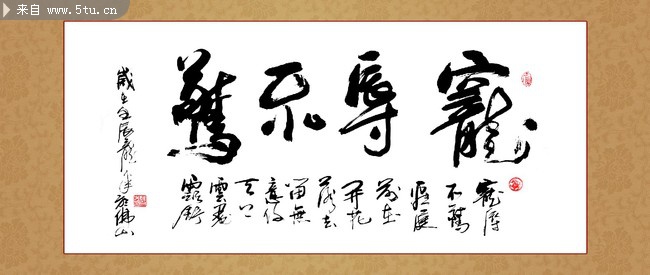 来自 www.5tu.cn
寵辱不驚
寵辱
不驚
庭
前
開花
落去
留無
意
天上
雲卷
雲舒
歲在壬辰龍年於佛山